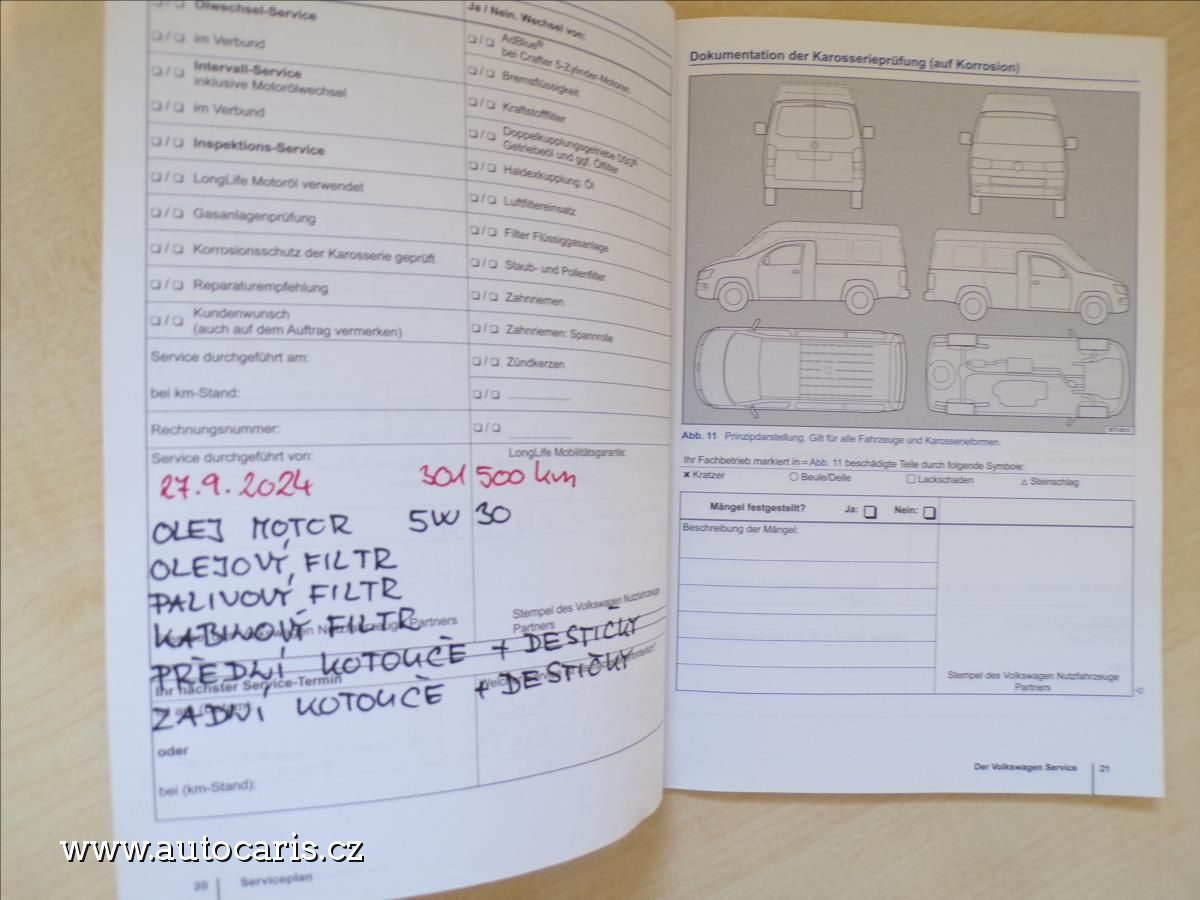 Ölwechsel-Service
❏ / ❏ im Verbund
❏ / ❏ Intervall-Service
inklusive Motorölwechsel
❏ / ❏ im Verbund
❏ / ❏ Inspektions-Service
❏ / ❏ LongLife Motoröl verwendet
❏ / ❏ Gasanlagenprüfung
❏ / ❏ Korrosionsschutz der Karosserie geprüft
❏ / ❏ Reparaturempfehlung
❏ / ❏ Kundenwunsch
(auch auf dem Auftrag vermerken)
Service durchgeführt am:
bei km-Stand:
Rechnungsnummer:
Service durchgeführt von:
Ja / Nein, Wechsel von:
❏ / ❏ AdBlue®
bei Crafter 5-Zylinder-Motoren
❏ / ❏ Bremsflüssigkeit
❏ / ❏ Kraftstofffilter
❏ / ❏ Doppelkupplungsgetriebe DSG®:
Getriebeöl und ggf. Ölfilter
❏ / ❏ Haldexkupplung: Öl
❏ / ❏ Luftfiltereinsatz
❏ / ❏ Filter Flüssiggasanlage
❏ / ❏ Staub- und Pollenfilter
❏ / ❏ Zahnriemen
❏ / ❏ Zahnriemen: Spannrolle
❏ / ❏ Zündkerzen
❏ / ❏
❏ / ❏
LongLife Mobilitätsgarantie:
27.9.2024 301 500 km
OLEJ MOTOR 5W 30
OLEJOVÝ FILTR
PALIVOVÝ FILTR
KABINOVÝ FILTR
Partners
Stempel des Volkswagen Nutzfahrzeuge
Partners
PŘEDNÍ KOTOUČE + DESTIČKY
Ihr nächster Service-Termin
ZADNÍ KOTOUČE + DESTIČKY
oder
bei (km-Stand):
20 Serviceplan
Dokumentation der Karosserieprüfung (auf Korrosion)
Abb. 11 Prinzipdarstellung. Gilt für alle Fahrzeuge und Karosserieformen.
Ihr Fachbetrieb markiert in ⇒ Abb. 11 beschädigte Teile durch folgende Symbole:
✖ Kratzer ○ Beule/Delle □ Lackschaden △ Steinschlag
Mängel festgestellt? Ja: ❏ Nein: ❏
Beschreibung der Mängel:
Stempel des Volkswagen Nutzfahrzeuge
Partners
Der Volkswagen Service 21
www.autocaris.cz